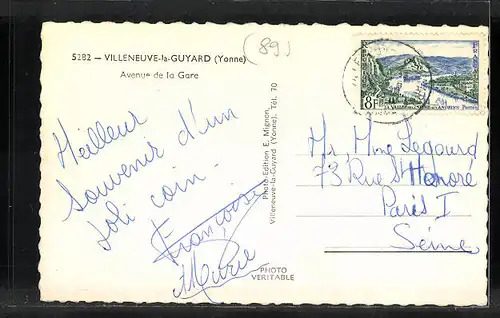 5282 - VILLENEUVE-la-GUYARD (Yonne)
Avenue de la Gare
(89)
Meilleur
souvenir d'un
joli coin.
Françoise
Marie
Photo-Edition E. Mignon,
Villeneuve-la-Guyard (Yonne), Tél. 70
PHOTO
VERITABLE
8F
Mr Mme Legourd
73 Rue St Honoré
Paris I
Seine